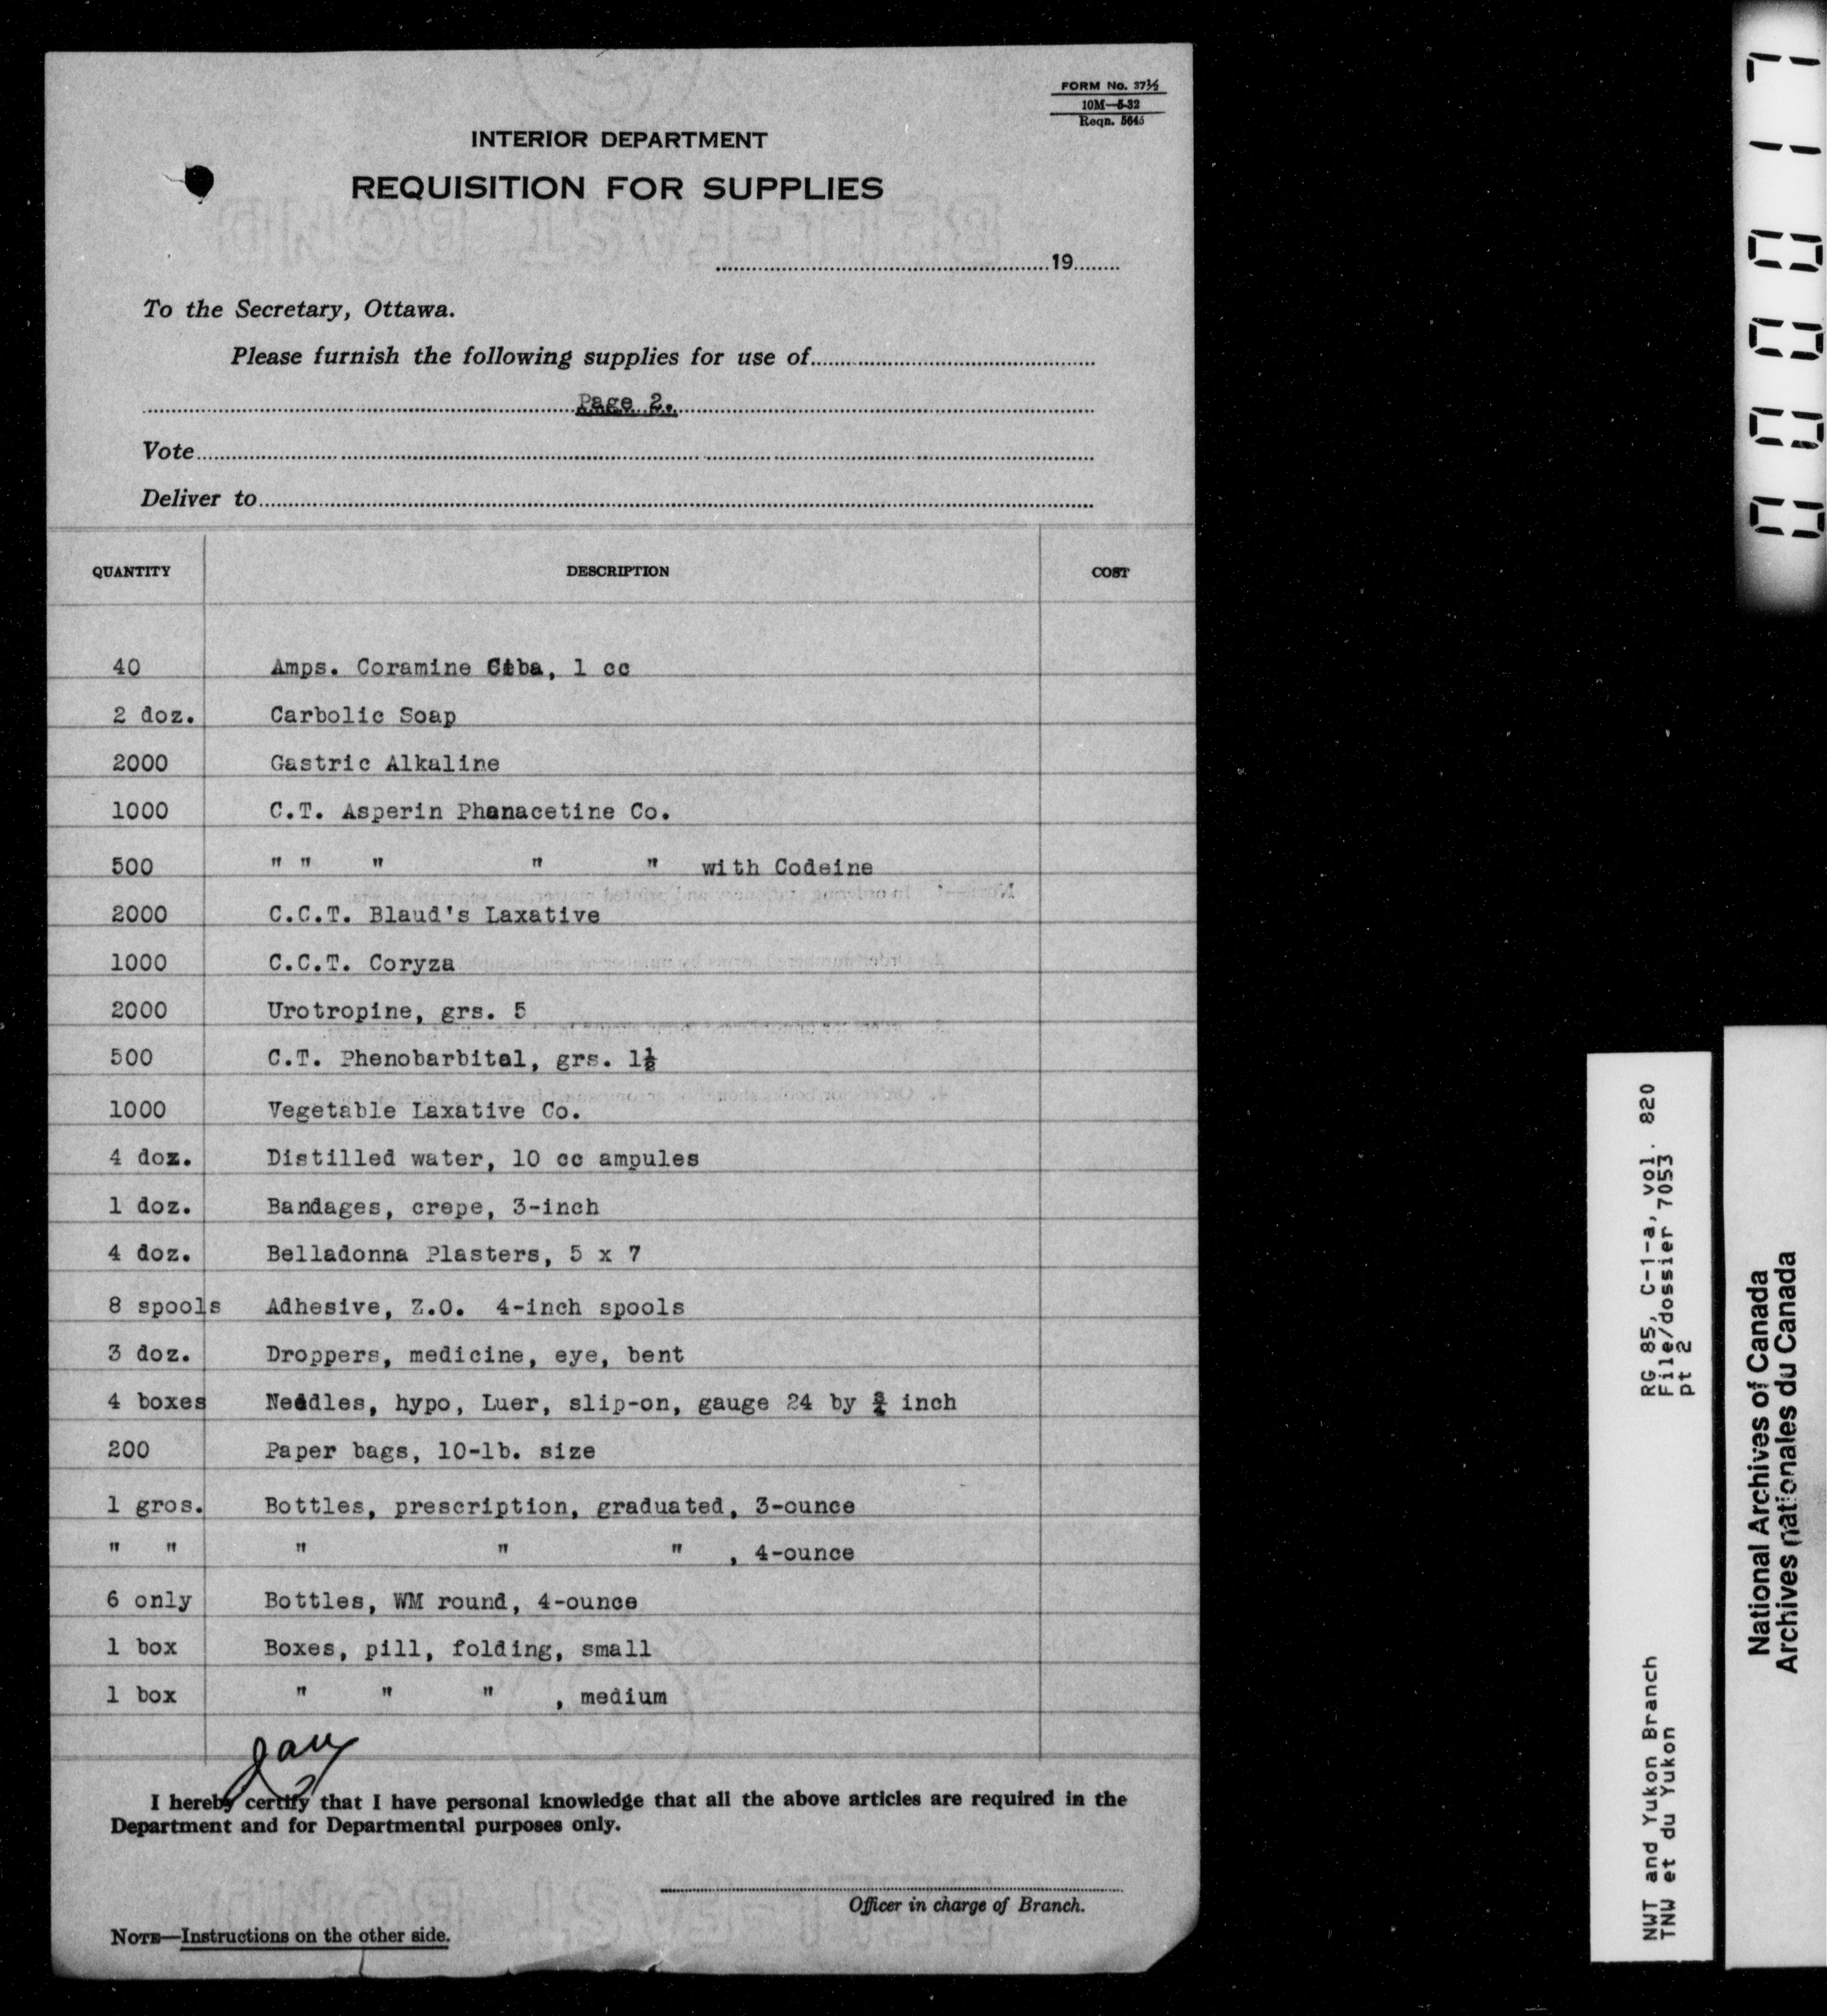 FORM No. 37½
10M—5-32
Reqn. 5645
INTERIOR DEPARTMENT
REQUISITION FOR SUPPLIES
19
To the Secretary, Ottawa.
Please furnish the following supplies for use of
Page 2.
Vote
Deliver to
QUANTITY DESCRIPTION COST
40 Amps. Coramine Ciba, 1 cc
2 doz. Carbolic Soap
2000 Gastric Alkaline
1000 C.T. Asperin Phanacetine Co.
500 " " " " " with Codeine
2000 C.C.T. Blaud's Laxative
1000 C.C.T. Coryza
2000 Urotropine, grs. 5
500 C.T. Phenobarbital, grs. 1½
1000 Vegetable Laxative Co.
4 doz. Distilled water, 10 cc ampules
1 doz. Bandages, crepe, 3-inch
4 doz. Belladonna Plasters, 5 x 7
8 spools Adhesive, Z.O. 4-inch spools
3 doz. Droppers, medicine, eye, bent
4 boxes Needles, hypo, Luer, slip-on, gauge 24 by ¾ inch
200 Paper bags, 10-lb. size
1 gros. Bottles, prescription, graduated, 3-ounce
" " " " " , 4-ounce
6 only Bottles, WM round, 4-ounce
1 box Boxes, pill, folding, small
1 box " " " , medium
I hereby certify that I have personal knowledge that all the above articles are required in the
Department and for Departmental purposes only.
Officer in charge of Branch.
NOTE—Instructions on the other side.
NWT and Yukon Branch RG 85, C-1-a, vol. 820
TNW et du Yukon File/dossier 7053
pt 2
National Archives of Canada
Archives nationales du Canada
000017